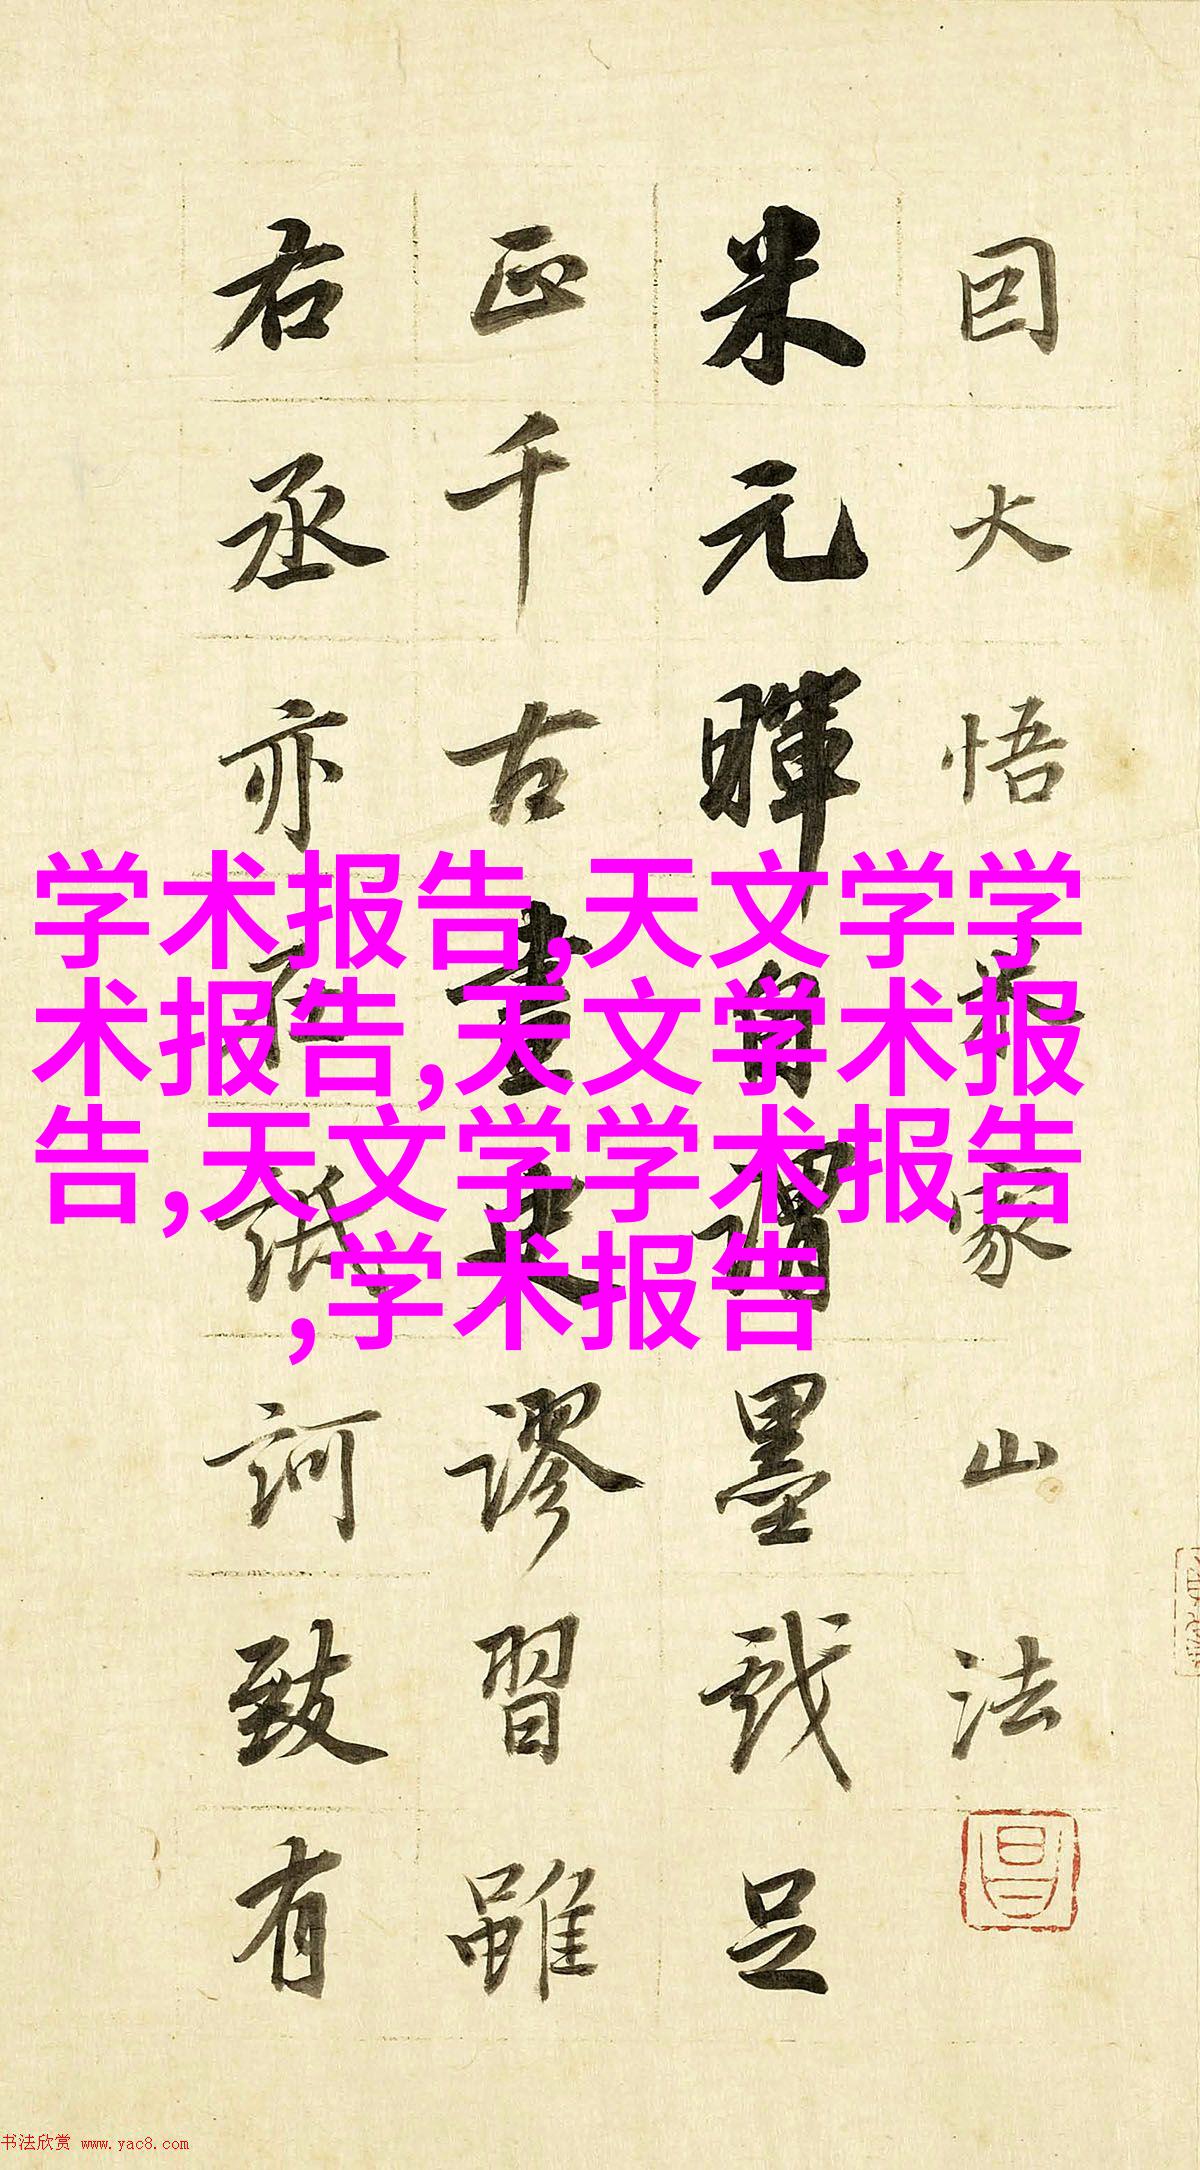 因大悟米家山法
米元暉自謂墨戲足
正千古畫史謬習雖
右丞亦在詆訶致有
学术报告,天文学学
术报告,天文学术报
告,天文学学术报告
,学术报告
书法欣赏 www.yac8.com